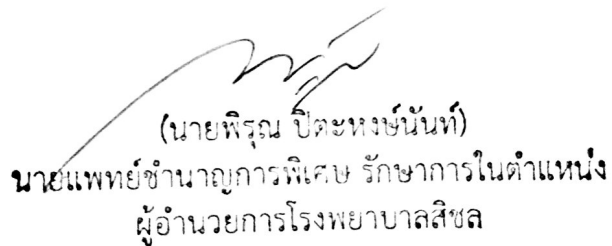 (นายพิรุณ ปิตะหงษ์นันท์)
นายแพทย์ชำนาญการพิเศษ รักษาการในตำแหน่ง
ผู้อำนวยการโรงพยาบาลสิชล